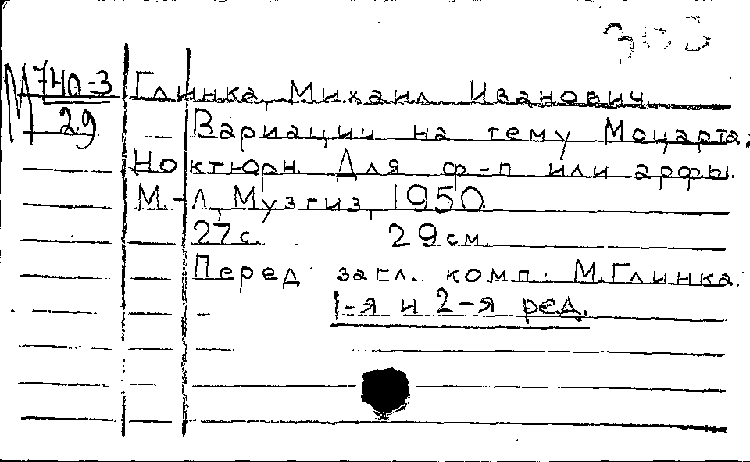 М 740-3
29
Глинка, Михаил Иванович
Вариации на тему Моцарта;
Ноктюрн. Для ф-п или арфы.
М.-Л, Музгиз, 1950
27с. 29см.
Перед загл. комп. М.Глинка.
1-я и 2-я ред.